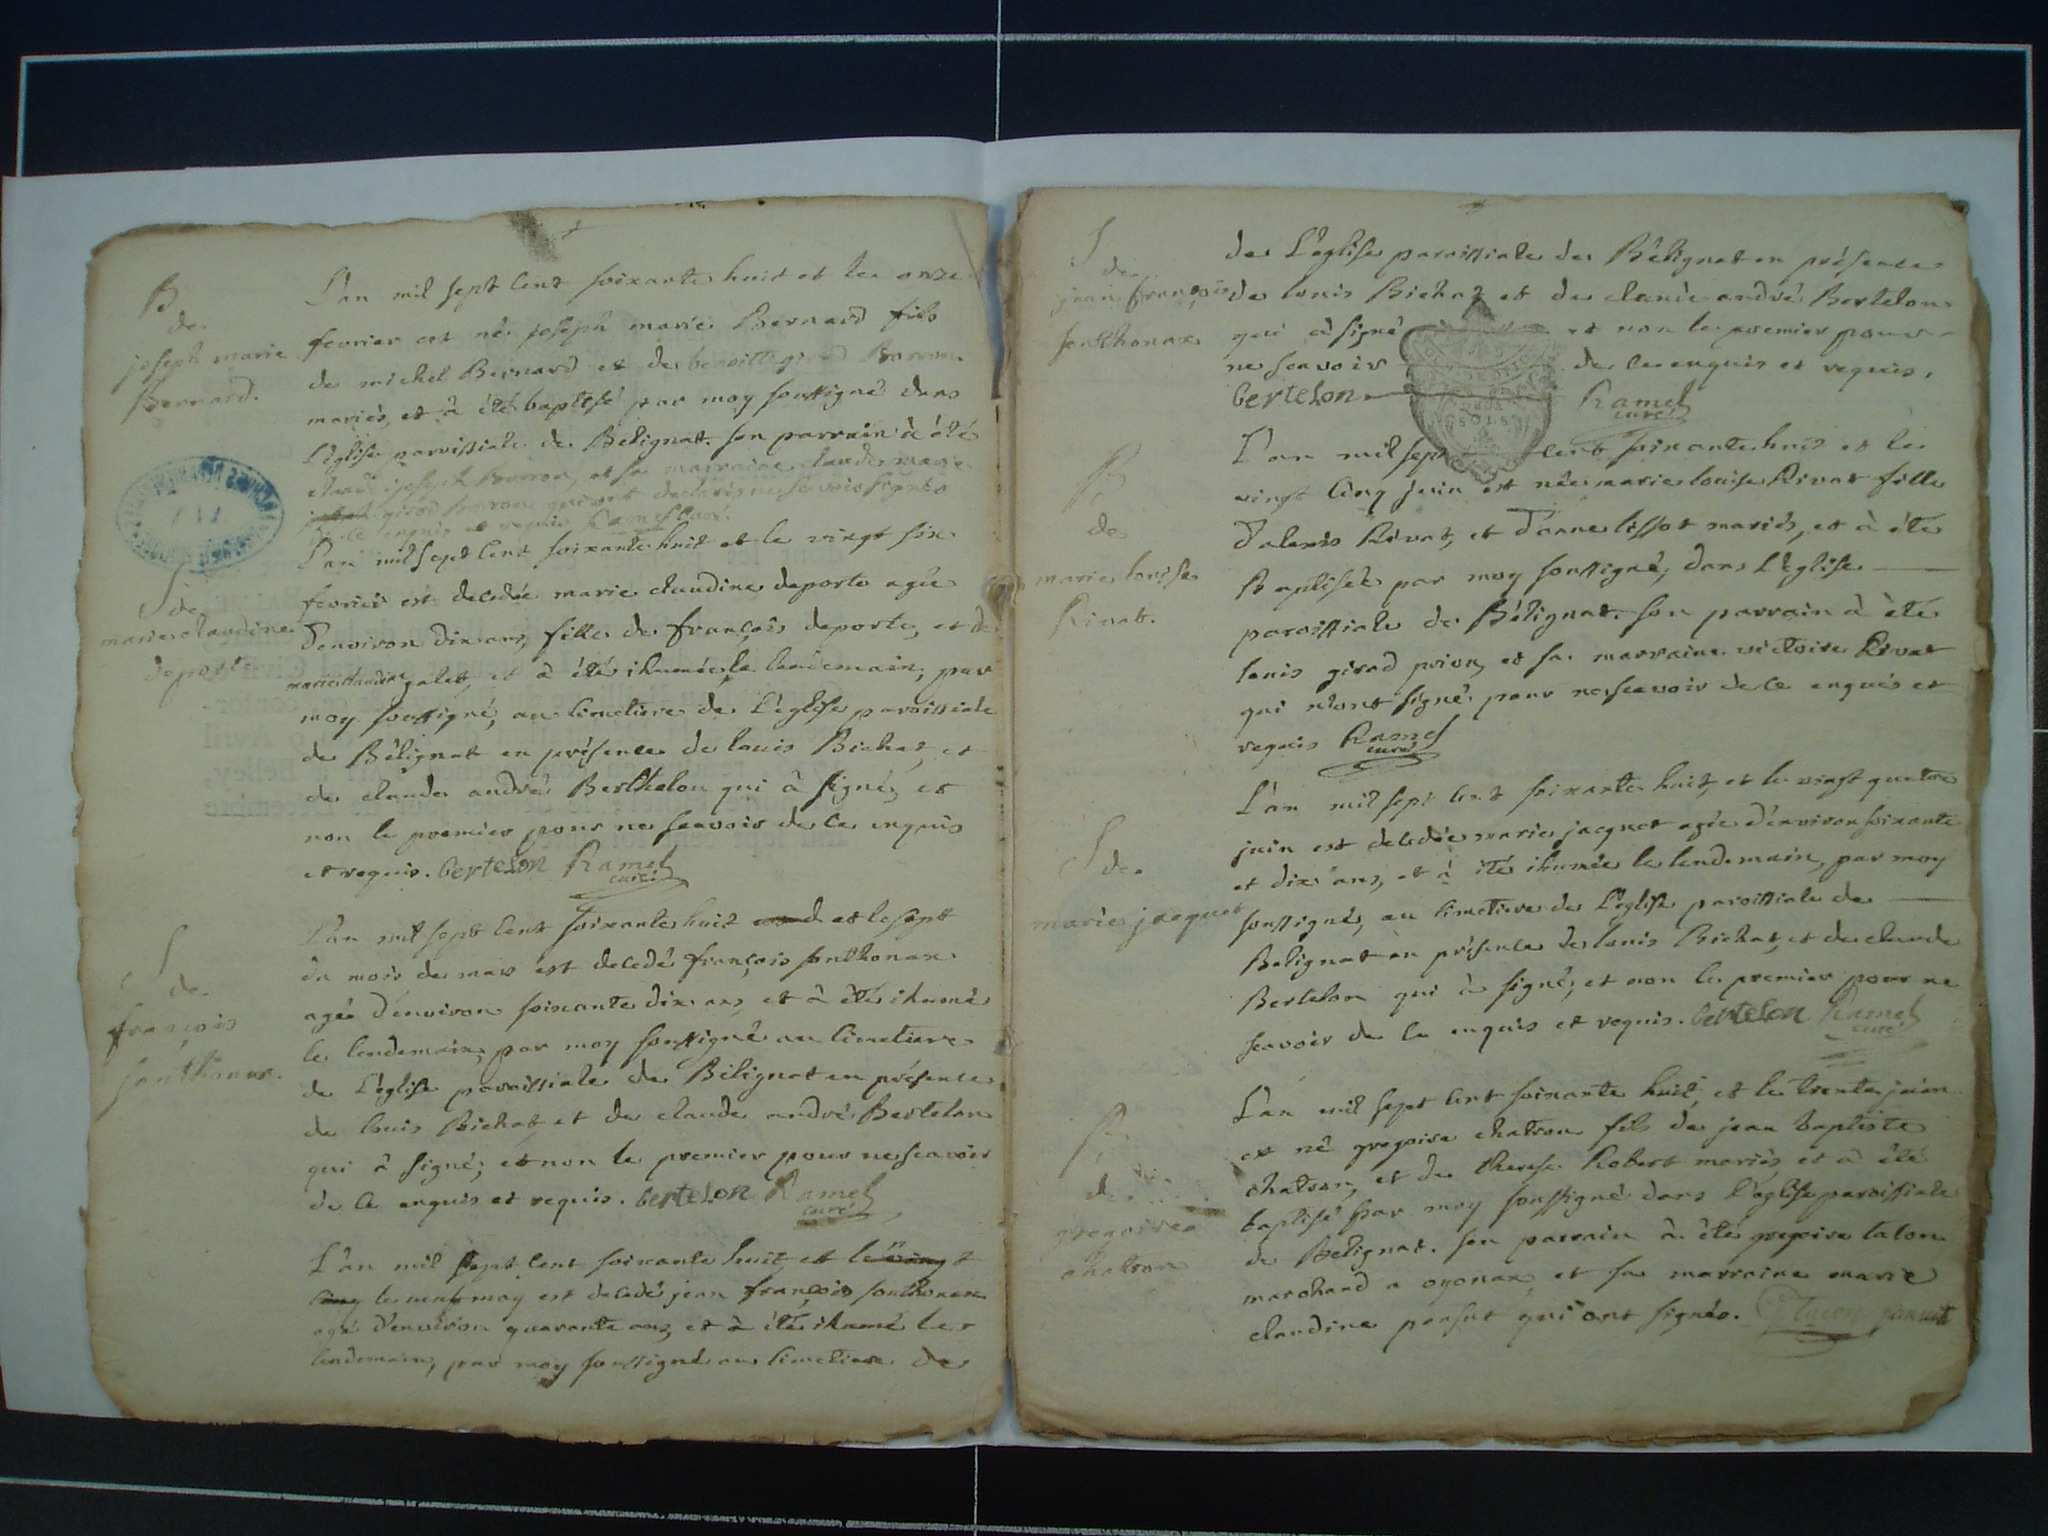 B
de
joseph marie
Bernard.
L'an mil sept cent soixante huit et le onze
fevrier est né joseph marie Bernard fils
de michel Bernard et de benoitte girod Barron
mariés, et à été baptisé par moy soussigné dans
L'église paroissiale de Bélignat. son parrain à été
claude joseph Barron, et sa marraine claude marie
girod barron qui ont declaré ne scavoir signer
de ce enquis et requis Ramel curé.
S
de
marie claudine
deporte
L'an mil sept cent soixante huit et le vingt six
fevrier est decedée marie claudine deporte agée
d'environ dix ans, fille de françois deporte, et de
marie claudine galet, et à été ihumée le lendemain, par
moy soussigné, au cimetiere de L'église paroissiale
de Bélignat en présence de louis Bichat, et
de claude andré Berthelon qui à signé, et
non le premier pour ne scavoir de ce enquis
et requis. bertelon Ramel
curé
S
de
françois
sonthonax.
L'an mil sept cent soixante huit et le sept
du mois de mars est decedé françois sonthonax
agé d'environ soixante dix ans, et à été ihumé
le lendemain, par moy soussigné au cimetiere
de L'église paroissiale de Bélignat en présence
de louis Bichat, et de claude andré Bertelon
qui à signé, et non le premier pour ne scavoir
de ce enquis et requis. bertelon Ramel
curé
L'an mil sept cent soixante huit et le vingt
cinq le neuf may est decedé jean françois sonthonax
agé d'environ quarante ans, et à été ihumé le
lendemain, par moy soussigné au cimetiere de
S
de
jean françois
sonthonax
de L'église paroissiale de Bélignat en présence
de louis Bichat et de claude andré Bertelon
qui à signé et non le premier pour
ne scavoir de ce enquis et requis.
bertelon Ramel
curé
B
de
marie louise
Rivat.
L'an mil sept cent soixante huit et le
vingt cinq juin est née marie louise Rivat fille
d'alexis Rivat, et d'anne lissot mariés, et à été
Baptisée par moy soussigné, dans L'église
paroissiale de Bélignat. son parrain à été
louis girod prion, et sa marraine victoire Rivat
qui n'ont signé pour ne scavoir de ce enquis et
requis Ramel
curé
S
de
marie jacquet
L'an mil sept cent soixante huit, et le vingt quatre
juin est decedée marie jacquet agée d'environ soixante
et dix ans, et à été ihumée le lendemain, par moy
soussigné, au cimetiere de L'église paroissiale de
Belignat en présence de louis Bichat, et de claude
Bertelon qui à signé, et non le premier pour ne
scavoir de ce enquis et requis. bertelon Ramel
curé
B
de
gregoire
chatron
L'an mil sept cent soixante huit, et le trente juin
est né gregoire chatron fils de jean baptiste
chatron, et de therese Robert mariés, et à été
baptisé par moy soussigné dans l'église paroissiale
de Bélignat. son parrain à été gregoire tacon
marchand a oyonax, et sa marraine marie
claudine pansut qui ont signés. Tacon pansut